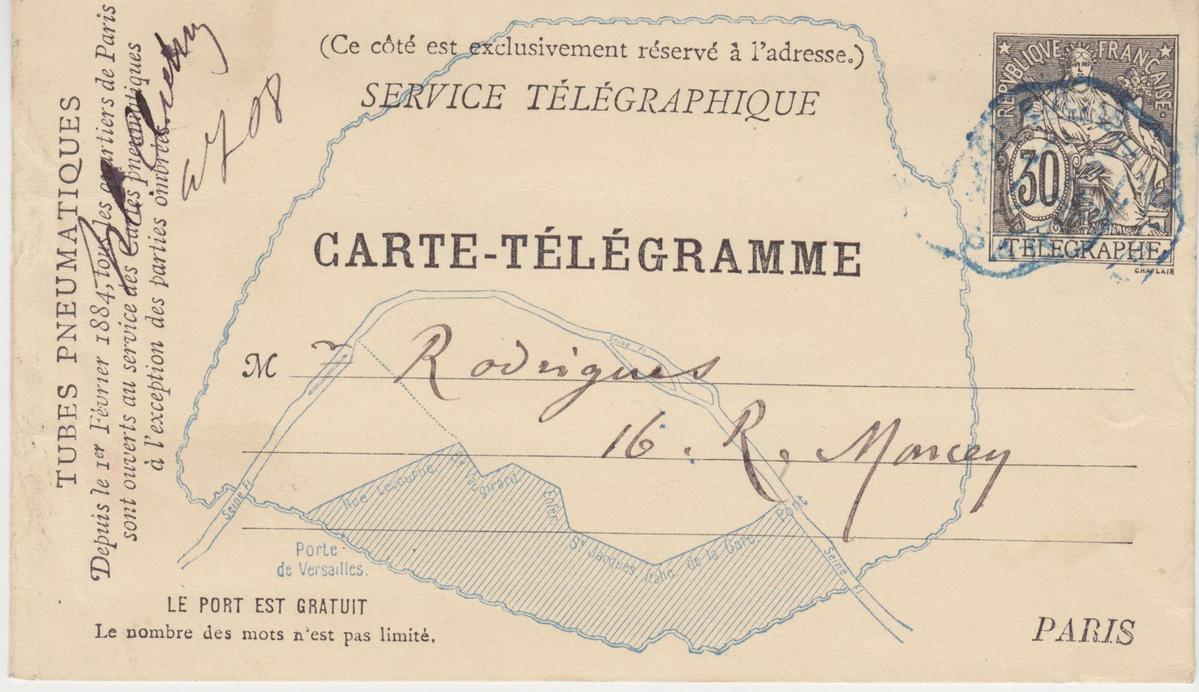 (Ce côté est exclusivement réservé à l'adresse.)
SERVICE TÉLÉGRAPHIQUE
CARTE-TÉLÉGRAMME
TUBES PNEUMATIQUES
Depuis le 1er Février 1884, tous les quartiers de Paris
sont ouverts au service des Cartes pneumatiques
à l'exception des parties ombrées.
RÉPUBLIQUE FRANÇAISE
30
TÉLÉGRAPHE
CHAPLAIN
M r Rodrigues
16. R. Moncey
Seine Fl
Seine Fl
Seine Fl
Rue Lecourbe
Vaugirard
Enfer
St Jacques
Italie
de la Gare.
Pont
Porte
de Versailles.
LE PORT EST GRATUIT
Le nombre des mots n'est pas limité.
PARIS